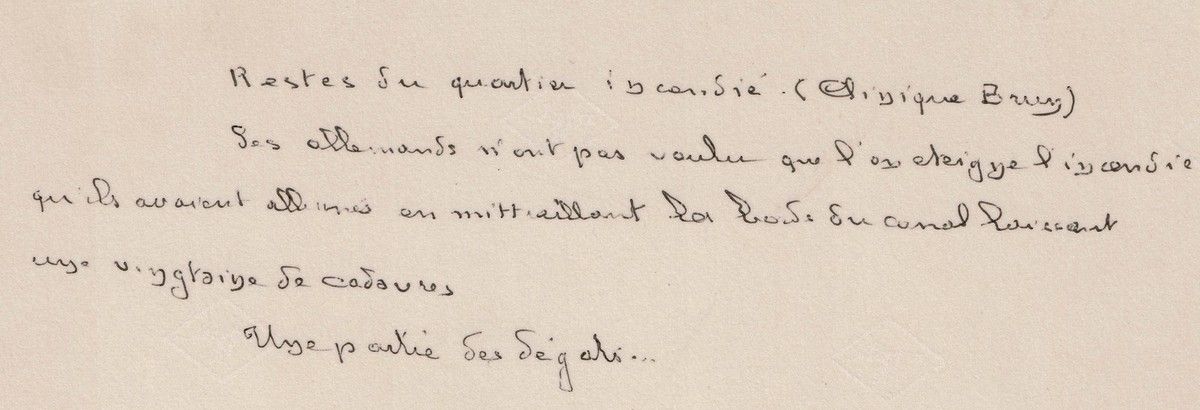 Restes du quartier incendié. (Clinique Bruy)
Les allemands n'ont pas voulu que l'on eteigne l'incendie
qu'ils avaient allumés en mittraillant les bords du canal laissant
une vingtaine de cadavres
Une partie des dégats...